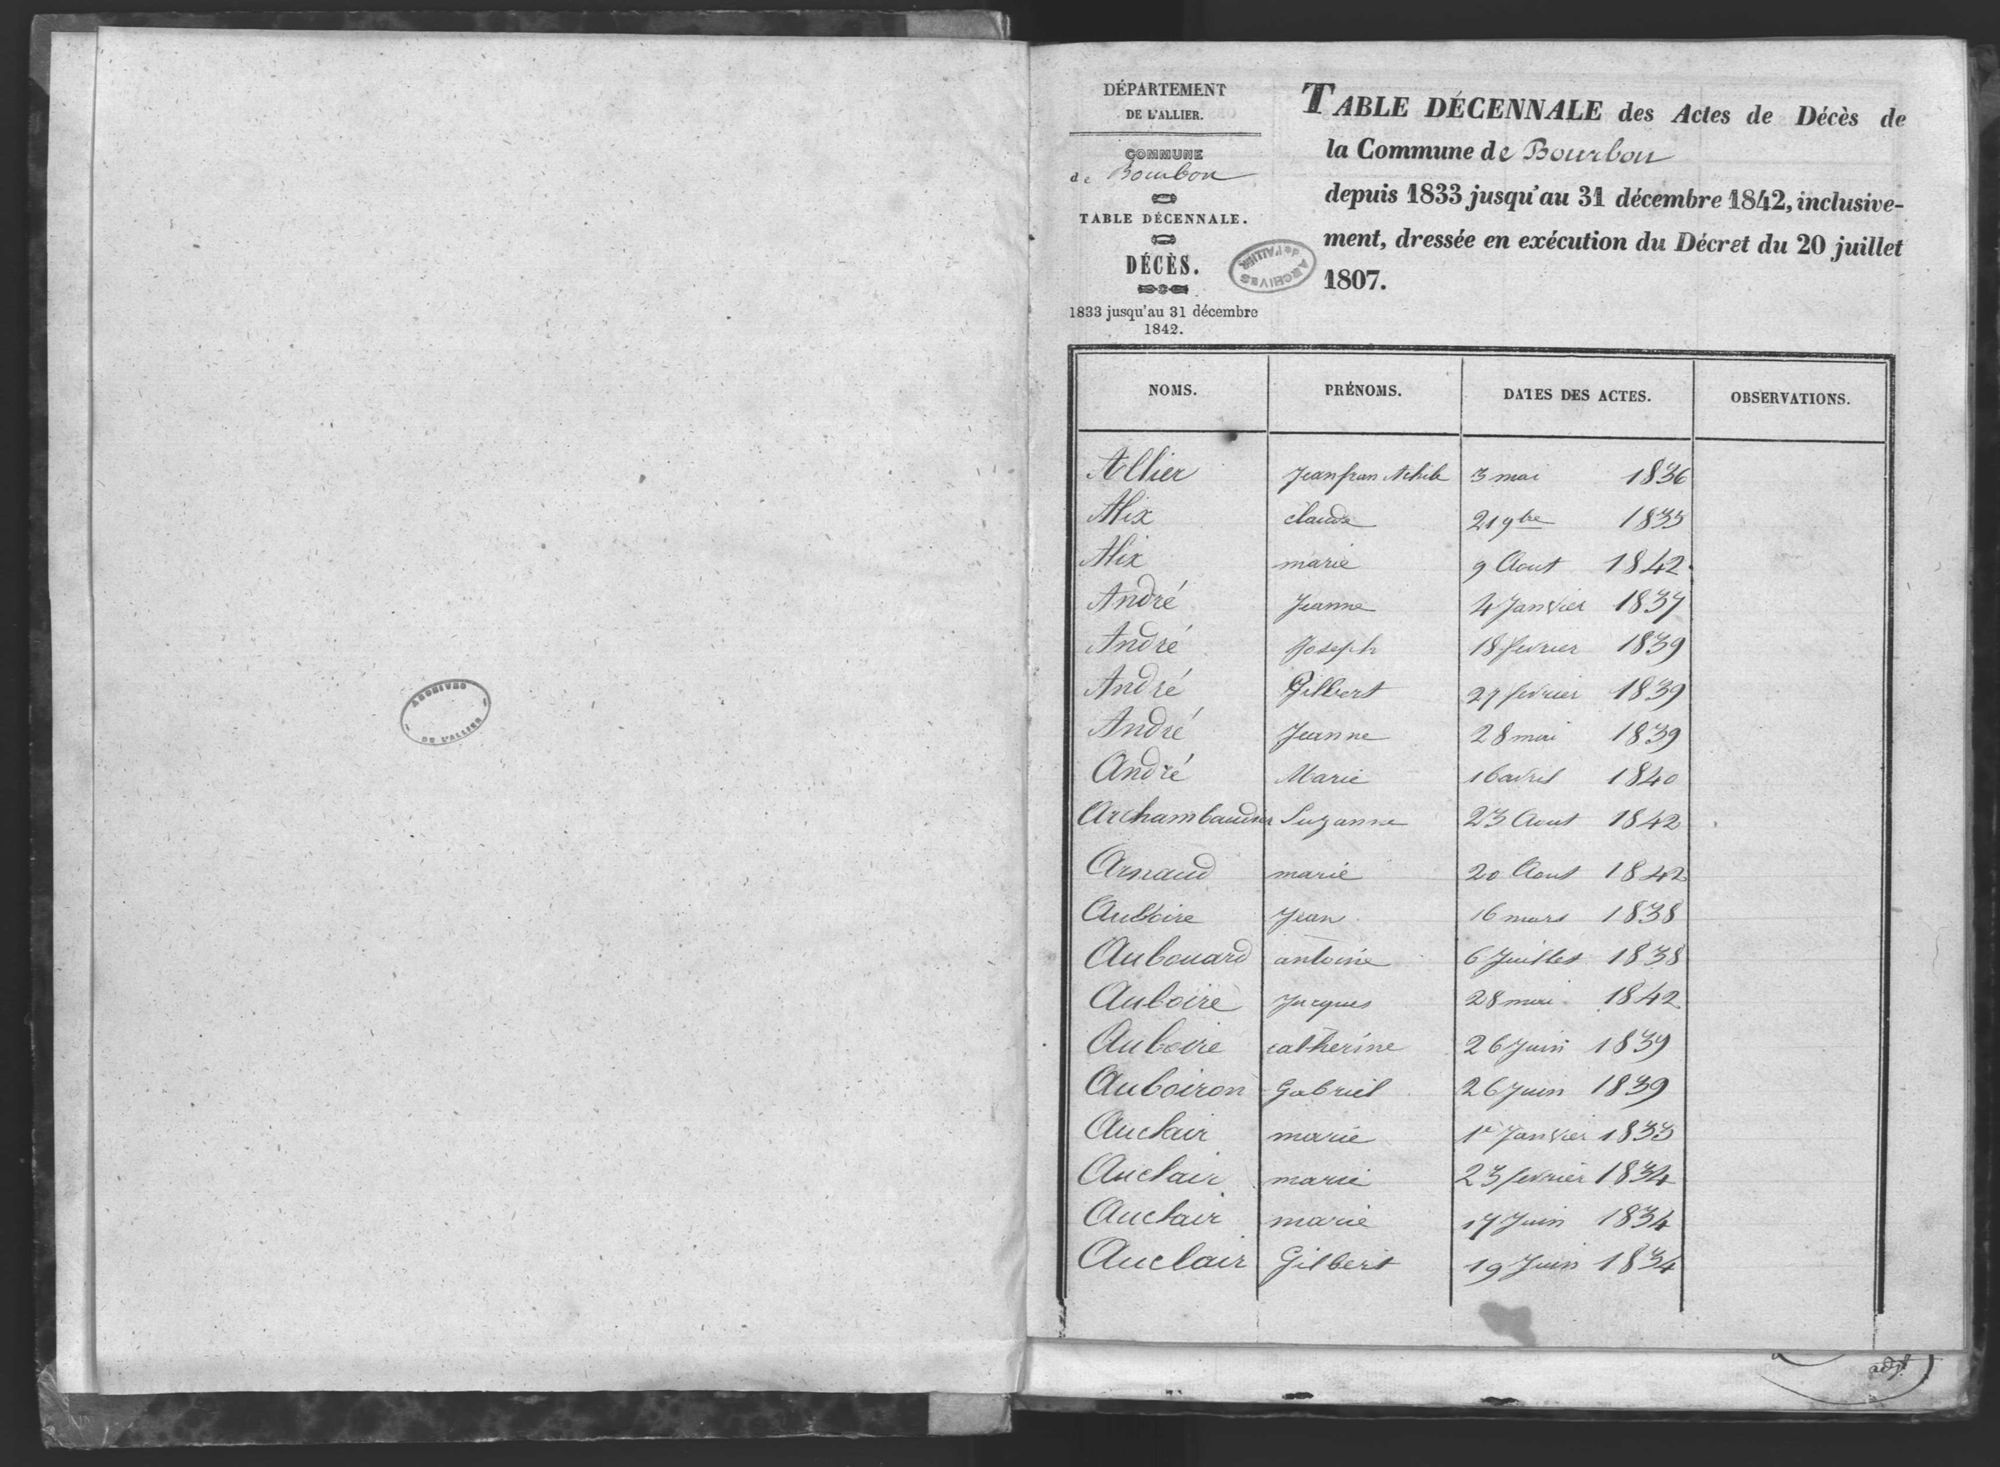 ARCHIVES
DE L'ALLIER
DÉPARTEMENT
DE L'ALLIER.
COMMUNE
de Bourbon
TABLE DÉCENNALE.
DÉCÈS.
1833 jusqu'au 31 décembre
1842.
TABLE DÉCENNALE des Actes de Décès de
la Commune de Bourbon
depuis 1833 jusqu'au 31 décembre 1842, inclusive-
ment, dressée en exécution du Décret du 20 juillet
1807.
ARCHIVES de l'ALLIER
NOMS. PRÉNOMS. DATES DES ACTES. OBSERVATIONS.
Allier Jean fran Achile 3 mai 1836
Alix claude 21 9bre 1833
Alix marie 9 Aout 1842
André Jeanne 4 Janvier 1837
André Joseph 18 fevrier 1839
André Gilbert 27 fevrier 1839
André Jeanne 28 mai 1839
André Marie 16 avril 1840
Suzanne 23 Aout 1842
Arnaud marie 20 Aout 1842
Auboire Jean 16 mars 1838
Aubouard antoine 6 Juillet 1838
Auboire Jacques 28 mai 1842
Auboire catherine 26 Juin 1839
Auboiron Gabriel 26 Juin 1839
Auclair marie 1er Janvier 1833
Auclair marie 23 fevrier 1834
Auclair marie 17 Juin 1834
Auclair Gilbert 19 Juin 1834
adjt